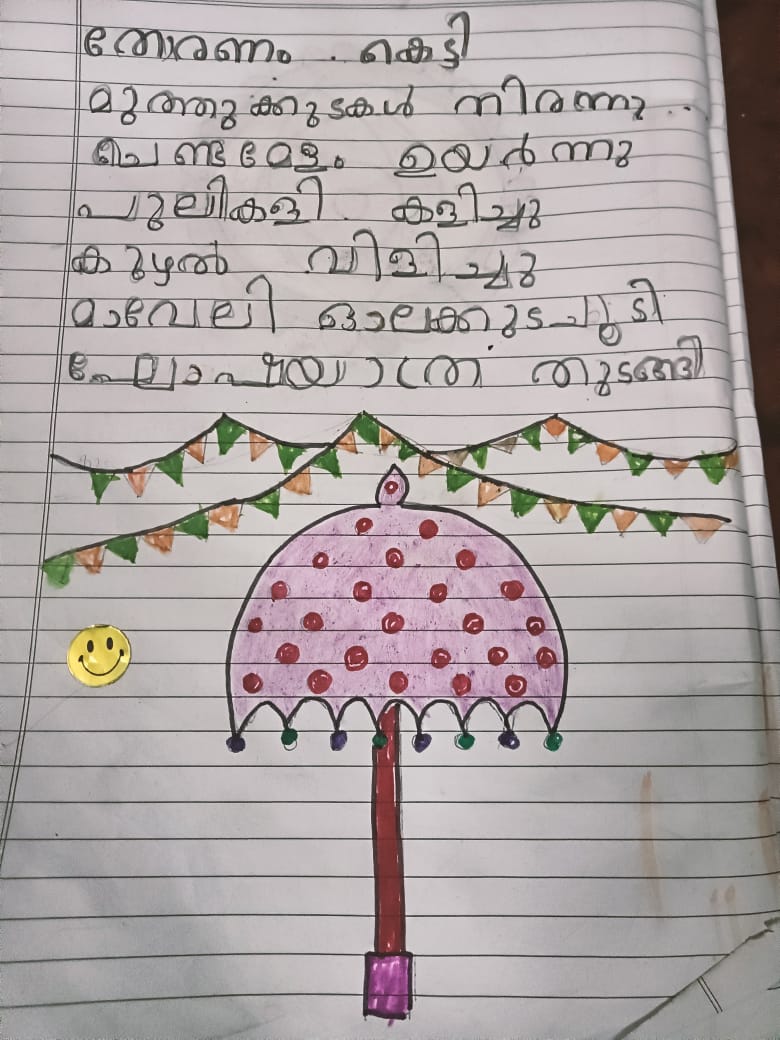 തോരണം . കെട്ടി
മുത്തുക്കുടകൾ നിരന്നു .
ചെണ്ടമേളം ഉയർന്നു
പുലികളി . കളിച്ചു
കുഴൽ വിളിച്ചു
മാവേലി ഓലക്കുടചൂടി
ഘോഷയാത്ര തുടങ്ങി